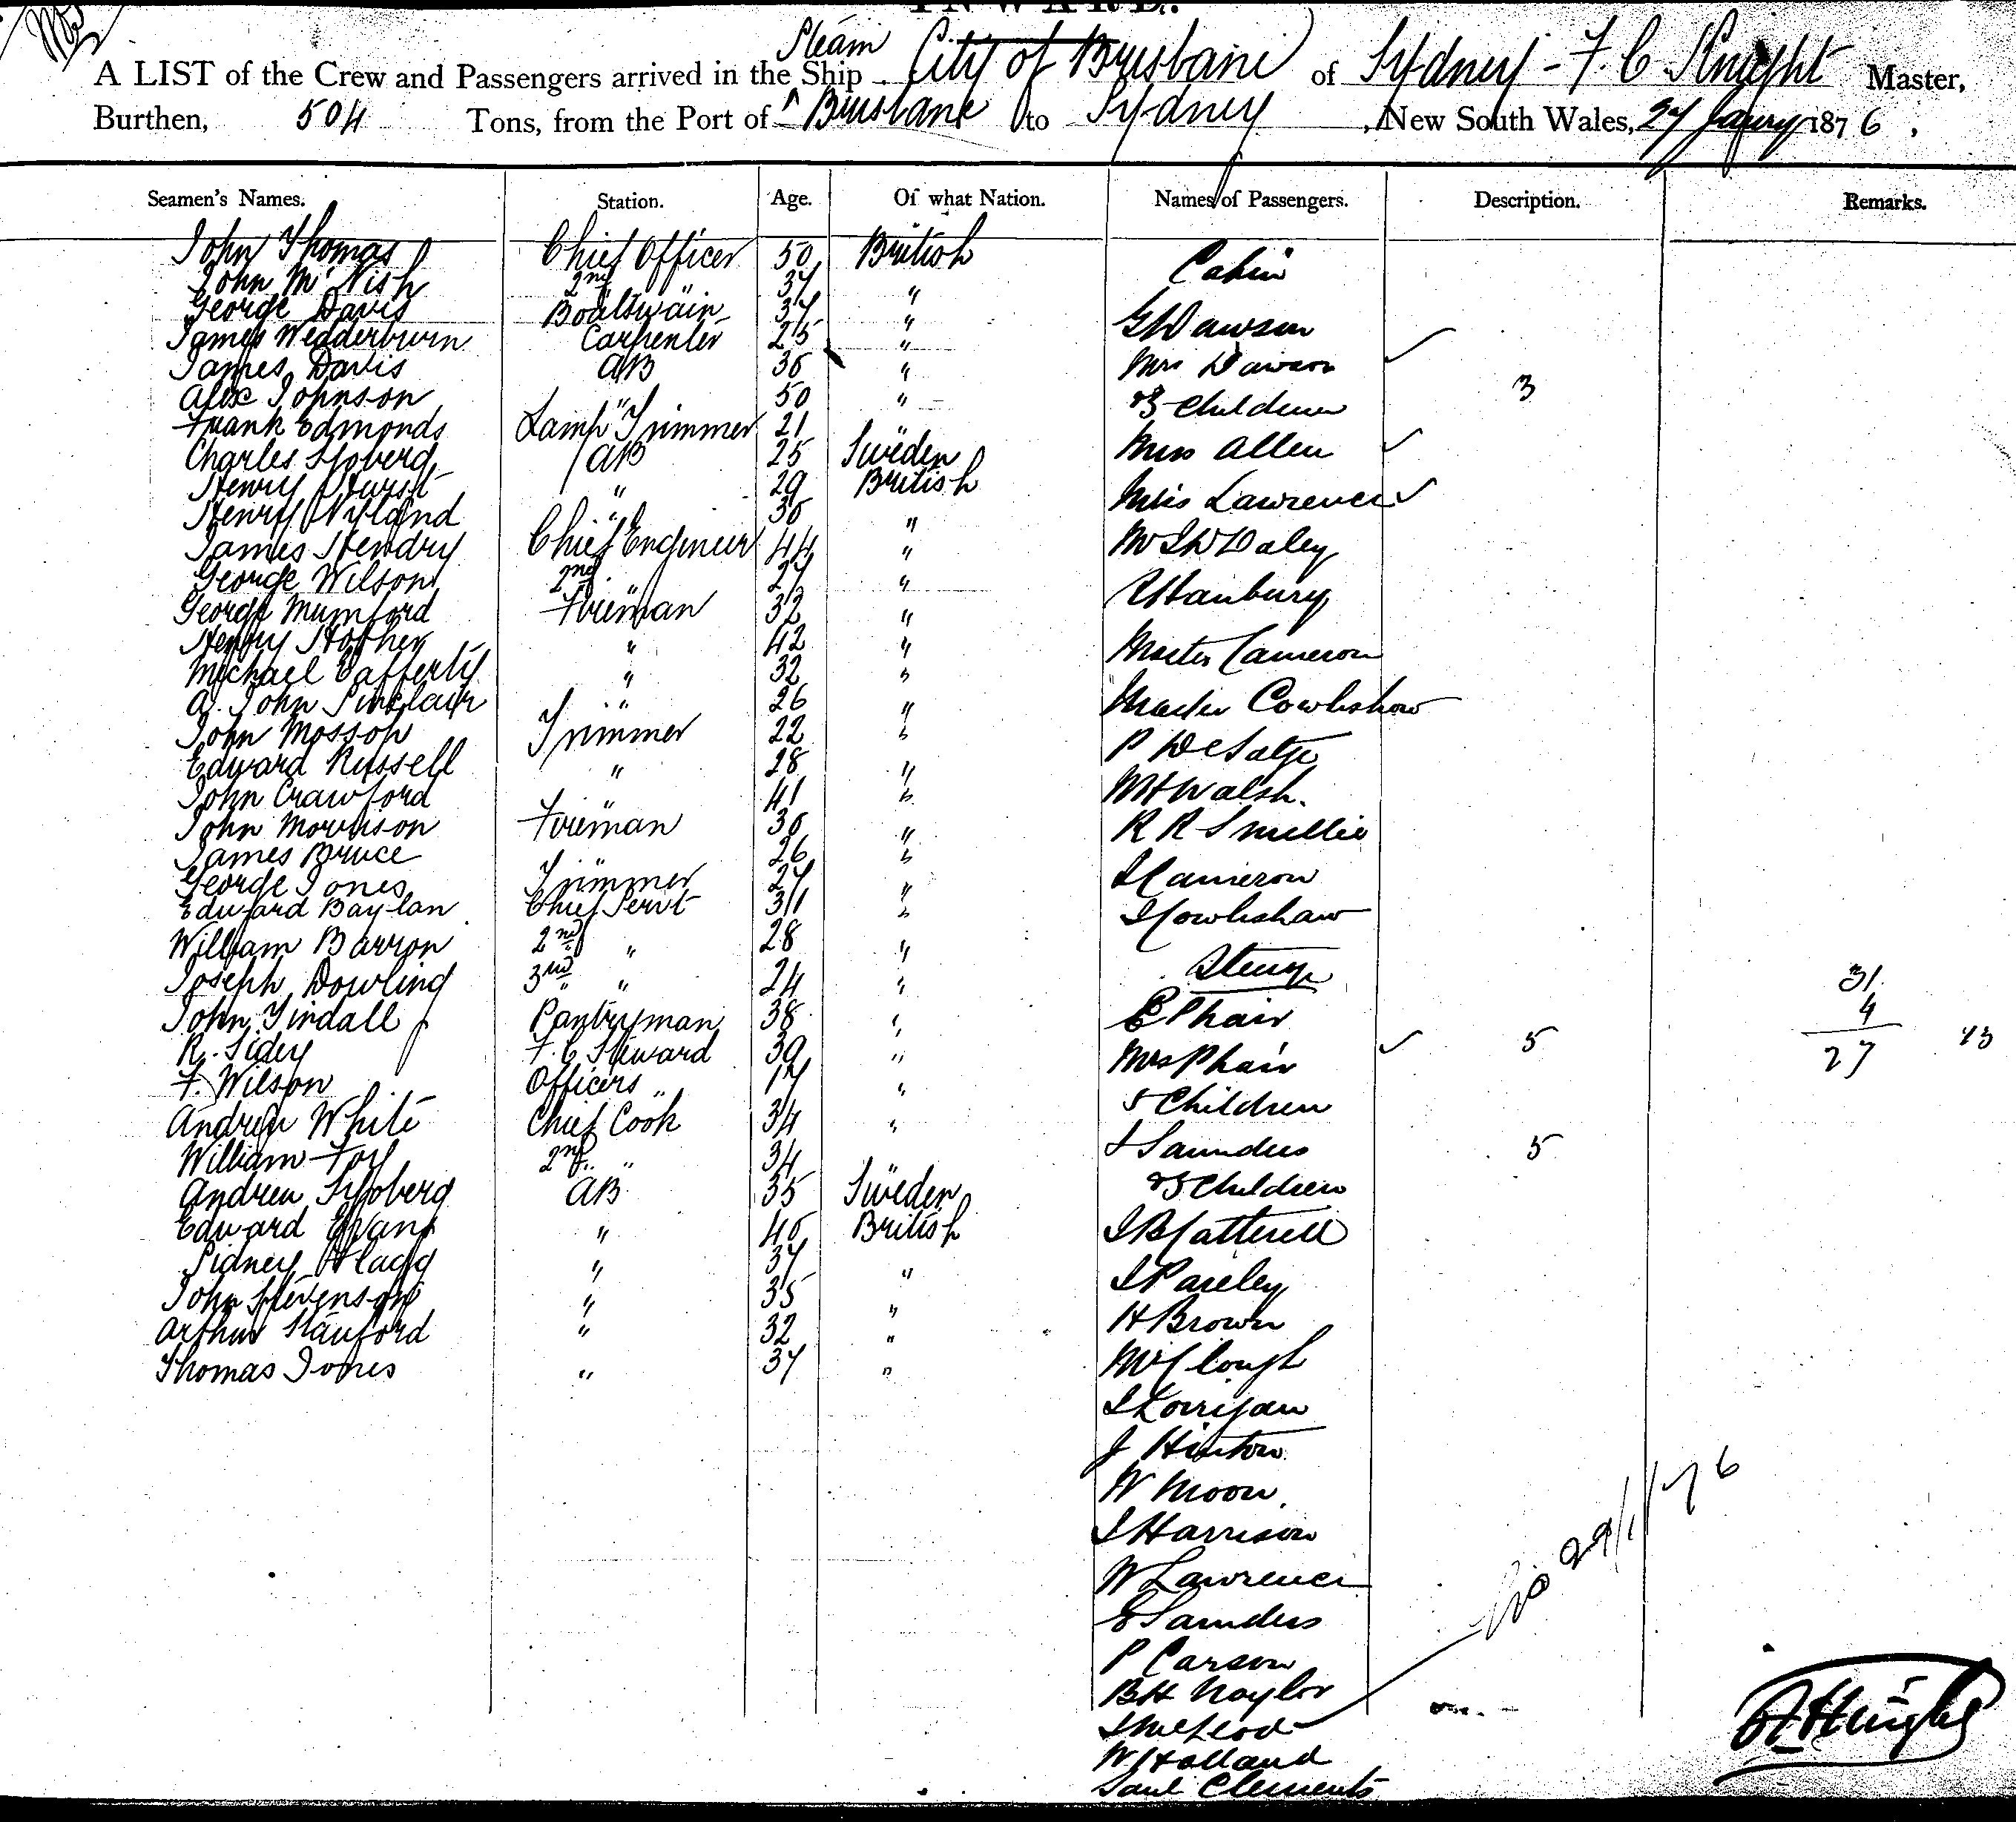 INWARD.
Steam
A LIST of the Crew and Passengers arrived in the Ship City of Brisbane of Sydney - F. C. Knight Master,
Burthen, 504 Tons, from the Port of Brisbane to Sydney, New South Wales, 27 January 1876.
Seamen's Names. Station. Age. Of what Nation. Names of Passengers. Description. Remarks.
John Thomas Chief Officer 50 British Cabin
John McNish 2nd " 37 "
George Davis Boatswain 37 " G Dawson
James Wedderburn Carpenter 25 "
James Davis AB 36 " Mrs Dawson ✓
Alex Johnson " 50 " & 3 Children 3
Frank Edmonds Lamp Trimmer 21 "
Charles Sjoberg AB 25 Sweden Miss Allen ✓
Henry Hurst " 29 British
Henry Nyland " 36 " Miss Lawrence ✓
James Hendry Chief Engineer 44 " Daley
George Wilson 2nd " 27 "
George Mumford Fireman 32 " Hanbury
Henry " 42 " Master Cameron
Michael Lafferty " 32 "
A. John Sinclair " 26 " Master Cowlishaw
John Mossop Trimmer 22 " P De Satge
Edward Russell " 28 "
John Crawford " 41 " W H Walsh.
John Morrison Fireman 36 " R R Smellie
James Bruce " 26 "
George Jones Trimmer 27 " J Cameron
Edward Baylan Chief Servt 31 " J Cowlishaw
William Barron 2nd " 28 "
Joseph Dowling 3rd " 24 " Steerage 31
John Tindall Pantryman 38 " E Phair 4
R. Sidey F. C. Steward 39 " Mrs Phair ✓ 5 27 43
F. Wilson Officers " 17 " 5 Children
Andrew White Chief Cook 34 "
William Foy 2nd " 34 " J Saunders 5
Andrew Sjoberg AB 35 Sweden & 5 Children
Edward Evans " 45 British J B Catterell
Sidney Flagg " 37 " J Paseley
John Stevenson " 35 " H Brown
Arthur Stanford " 32 "
Thomas Jones " 37 " W Clough
J Corrigan
J Hinton
W Moon
J Harrison
W Lawrence
E Saunders
P Carson
B H Naylor
J McLeod 29/1/76
W Holland
Saml Clements